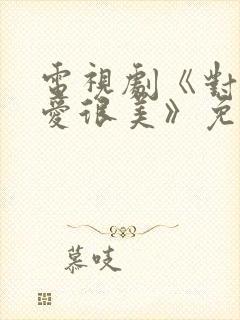 電視劇《對
愛很美》免
慕吱